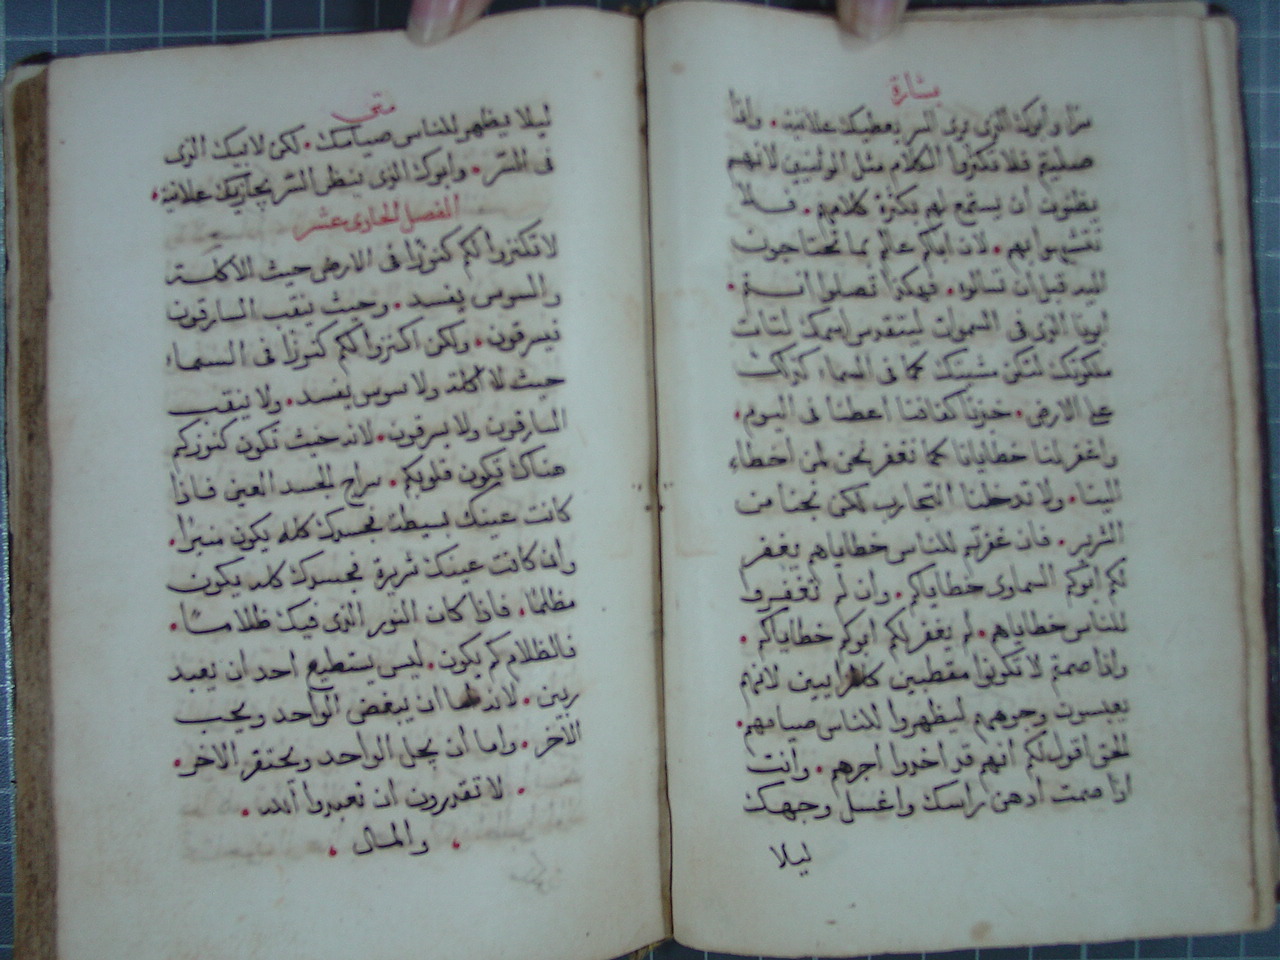 بشارة
سرًا وابوك الذى يرى السر يعطيك علانية . واذا
صليتم فلا تكثروا الكلام مثل الوثنيين لانهم
يظنون أن يستمع لهم بكثرة كلامهم . فلا
تتشبهوا بهم . لان اباكم عالم بما تحتاجون
اليه قبل أن تسالوه . فهكذا تصلوا انتم .
ابونا الذى فى السموات ليتقدس اسمك لتات
ملكوتك لتكن مشيتك كما فى السماء كذلك
على الارض . خبزنا كفافنا اعطنا فى اليوم .
واغفر لنا خطايانا كما نغفر نحن لمن اخطاء
الينا . ولا تدخلنا التجارب لكن نجنا من
الشرير . فان غفرتم للناس خطاياهم يغفر
لكم ابوكم السماوى خطاياكم . وان لم تغفروا
للناس خطاياهم . لم يغفر لكم ابوكم خطاياكم .
واذا صمتم لا تكونوا مقطبين كالمرايين لانهم
يعبسون وجوههم ليظهروا للناس صيامهم .
الحق اقول لكم انهم قد اخدوا اجرهم . وأنت
اذا صمت ادهن راسك واغسل وجهك
ليلا
متى
ليلا يظهر للناس صيامك . لكن لابيك الذى
فى السر . وابوك الذى ينظر السر يجازيك علانية .
الفصل الحادى عشر
لا تكنزوا لكم كنوزا فى الارض حيث الاكلة
والسوس يفسد . وحيث ينقب السارقون
فيسرقون . ولكن اكنزوا لكم كنوزا فى السماء
حيث لا اكلة ولا سوس يفسد . ولا ينقب
السارقون ولا يسرقون . لانه حيث تكون كنوزكم
هناك تكون قلوبكم . سراج الجسد العين فاذا
كانت عينك بسيطة فجسدك كله يكون منيرا .
وان كانت عينك شريرة فجسدك كله يكون
مظلمًا . فاذا كان النور الذى فيك ظلامًا .
فالظلام كم يكون . ليس يستطيع احد ان يعبد
ربين . لانه اما ان يبغض الواحد ويحب
الآخر . واما أن يجل الواحد ويحتقر الاخر .
. لا تقدرون ان تعبدوا الله .
. والمال .